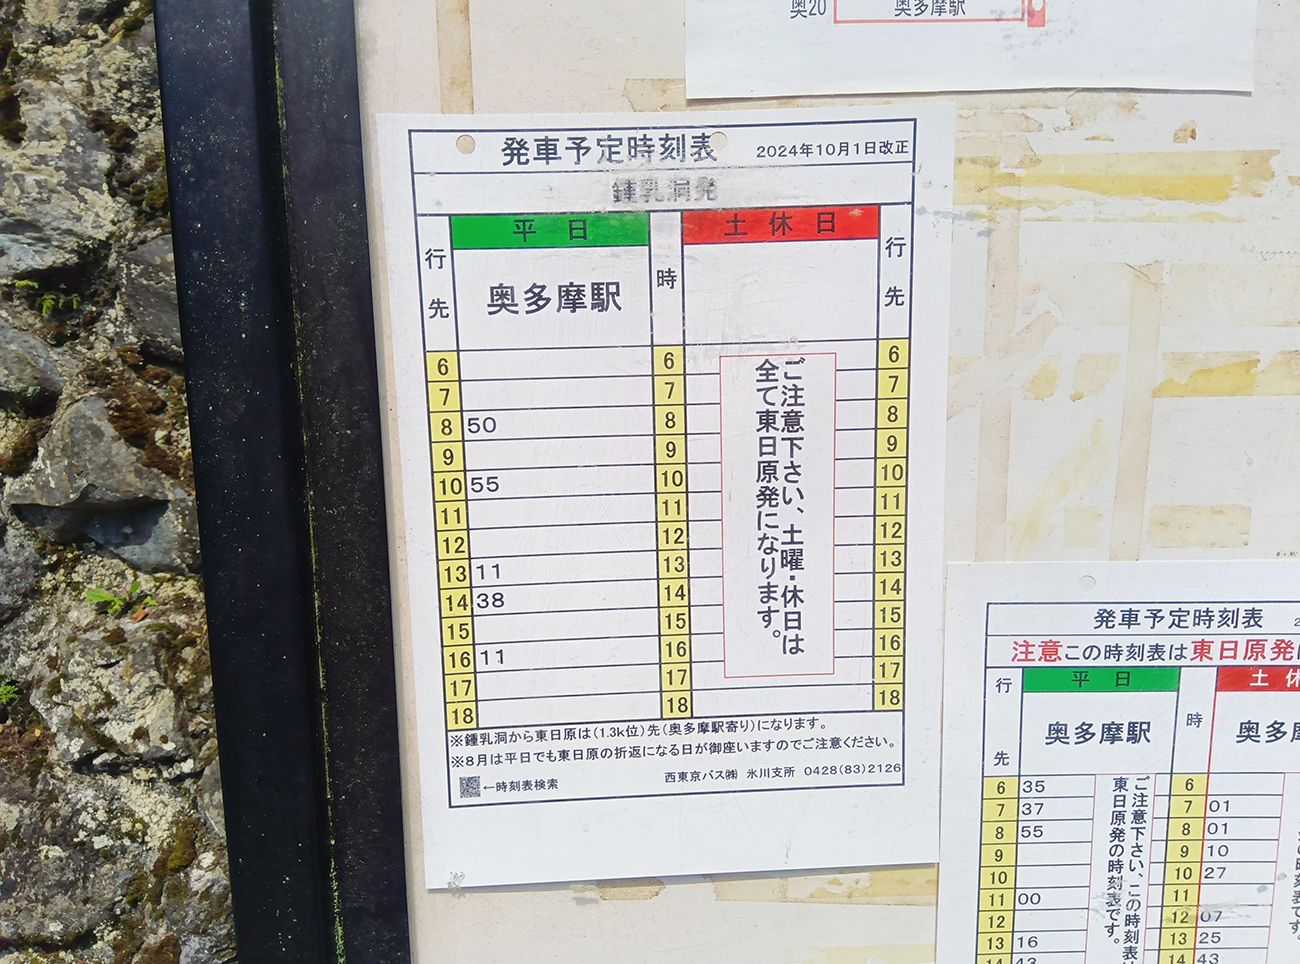 奥20 奥多摩駅
発車予定時刻表 2024年10月1日改正
鍾乳洞発
行先 平日 時 土休日 行先
奥多摩駅
6 6 6
7 7 7
8 50 8 8
9 9 9
10 55 10 10
11 11 11
12 12 12
13 11 13 13
14 38 14 14
15 15 15
16 11 16 16
17 17 17
18 18 18
ご注意下さい、土曜・休日は
全て東日原発になります。
※鍾乳洞から東日原は(1.3k位)先(奥多摩駅寄り)になります。
※8月は平日でも東日原の折返になる日が御座いますのでご注意ください。
←時刻表検索 西東京バス㈱ 氷川支所 0428(83)2126
発車予定時刻表
注意この時刻表は東日原発
行先 平日 時 土休
奥多摩駅 奥多
6 35 6
7 37 7 01
8 55 8 01
9 9 10
10 10 27
11 00 11
12 12 07
13 16 13 25
14 43 14 43
ご注意下さい、この時刻表は
東日原発の時刻表です。